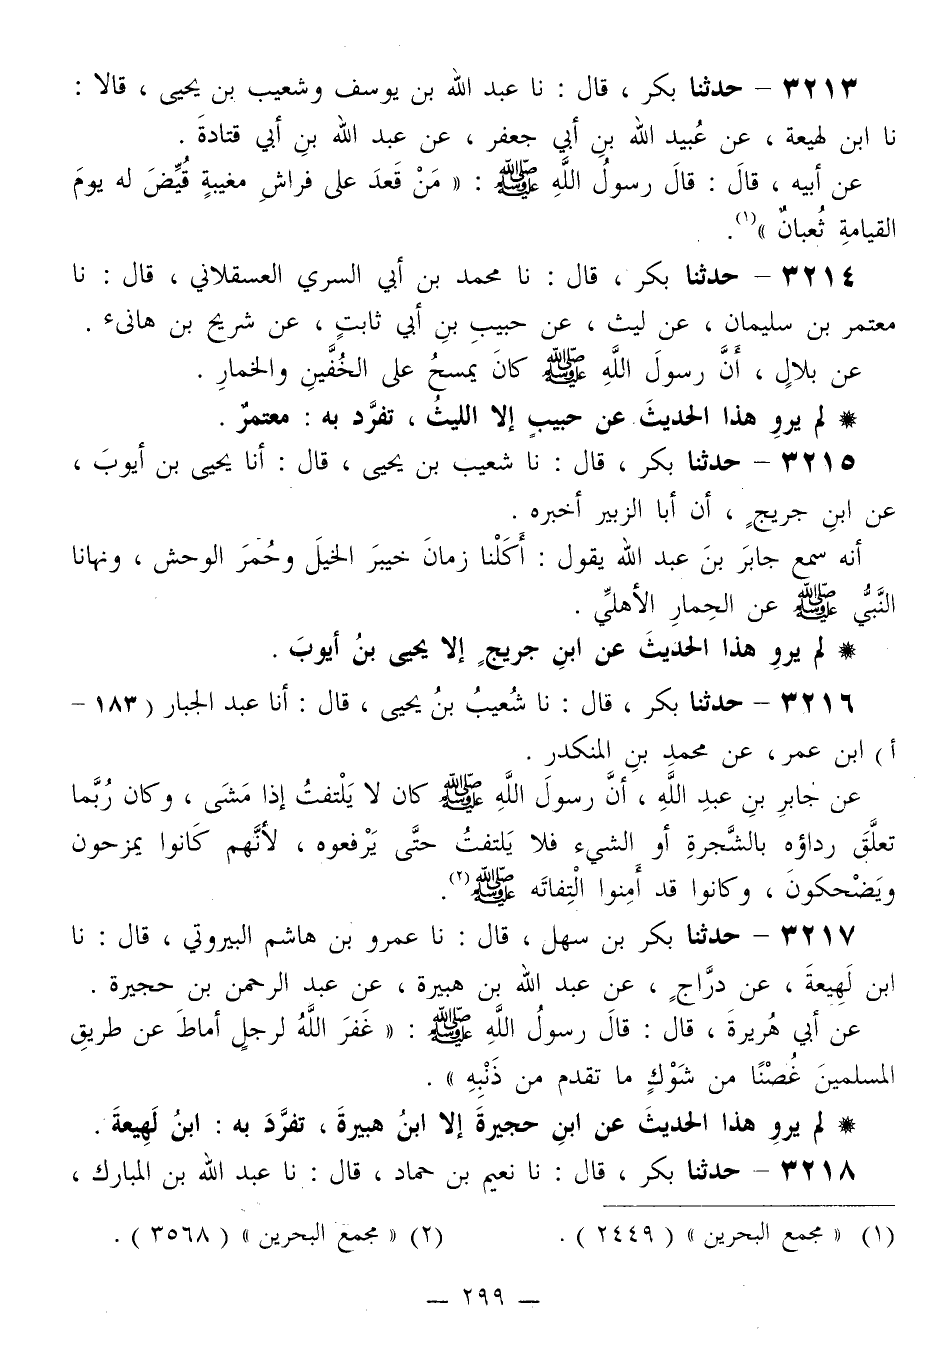 ٣٢١٣ – حدثنا بكر ، قال : نا عبد الله بن يوسف وشعيب بن يحيى ، قالا :
نا ابن لهيعة ، عن عُبيد الله بنِ أبي جعفر ، عن عبد الله بنِ أبي قتادةَ .
عن أبيه ، قالَ : قالَ رسولُ اللَّهِ ﷺ : « مَنْ قَعدَ على فراشِ مغيبةٍ قُيِّضَ له يومَ
القيامةِ ثُعبانٌ »(١).
٣٢١٤ – حدثنا بكر ، قال : نا محمد بن أبي السري العسقلاني ، قال : نا
معتمر بن سليمان ، عن ليث ، عن حبيبِ بنِ أبي ثابتٍ ، عن شريح بن هانىء .
عن بلالٍ ، أَنَّ رسولَ اللَّهِ ﷺ كانَ يمسحُ على الخُفَّينِ والخمارِ .
* لم يروِ هذا الحديثَ عن حبيبٍ إلا الليثُ ، تفرَّد به : معتمرٌ .
٣٢١٥ – حدثنا بكر ، قال : نا شعيب بن يحيى ، قال : أنا يحيى بن أيوبَ ،
عن ابنِ جريجٍ ، أن أبا الزبير أخبره .
أنه سمع جابرَ بنَ عبد الله يقول : أَكَلْنا زمانَ خيبرَ الخيلَ وحُمرَ الوحش ، ونهانا
النَّبيُّ ﷺ عن الحِمارِ الأهليِّ .
* لم يروِ هذا الحديثَ عن ابنِ جريجٍ إلا يحيى بنُ أيوبَ .
٣٢١٦ – حدثنا بكر ، قال : نا شُعيبُ بنُ يحيى ، قال : أنا عبد الجبار ( ١٨٣ –
أ ) ابن عمر ، عن محمدِ بنِ المنكدر .
عن جابرِ بنِ عبدِ اللَّهِ ، أنَّ رسولَ اللَّهِ ﷺ كان لا يَلْتفتُ إذا مَشَى ، وكان رُبَّما
تعلَّقَ رداؤه بالشَّجرةِ أو الشيء فلا يَلتفتُ حتَّى يَرْفعوه ، لأنَّهم كَانوا يمزحون
ويَضْحكونَ ، وكانوا قد أَمِنوا الْتِفاتَه ﷺ(٢).
٣٢١٧ – حدثنا بكر بن سهل ، قال : نا عمرو بن هاشم البيروتي ، قال : نا
ابن لَهِيعةَ ، عن درَّاجٍ ، عن عبد الله بن هبيرة ، عن عبد الرحمن بن حجيرة .
عن أبي هُريرةَ ، قال : قالَ رسولُ اللَّهِ ﷺ : « غَفرَ اللَّهُ لرجلٍ أماطَ عن طريقِ
المسلمينَ غُصْنًا من شَوْكٍ ما تقدم من ذَنْبِهِ » .
* لم يروِ هذا الحديثَ عن ابنِ حجيرةَ إلا ابنُ هبيرةَ ، تفرَّدَ به : ابنُ لَهِيعةَ .
٣٢١٨ – حدثنا بكر ، قال : نا نعيم بن حماد ، قال : نا عبد الله بن المبارك ،
(١) « مجمع البحرين » ( ٢٤٤٩ ) . (٢) « مجمع البحرين » ( ٣٥٦٨ ) .
– ٢٩٩ –